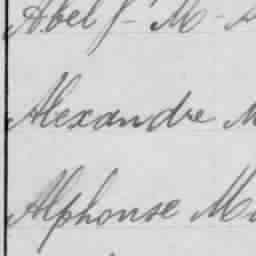 Abel J- M-
Alexandre M
Alphonse M